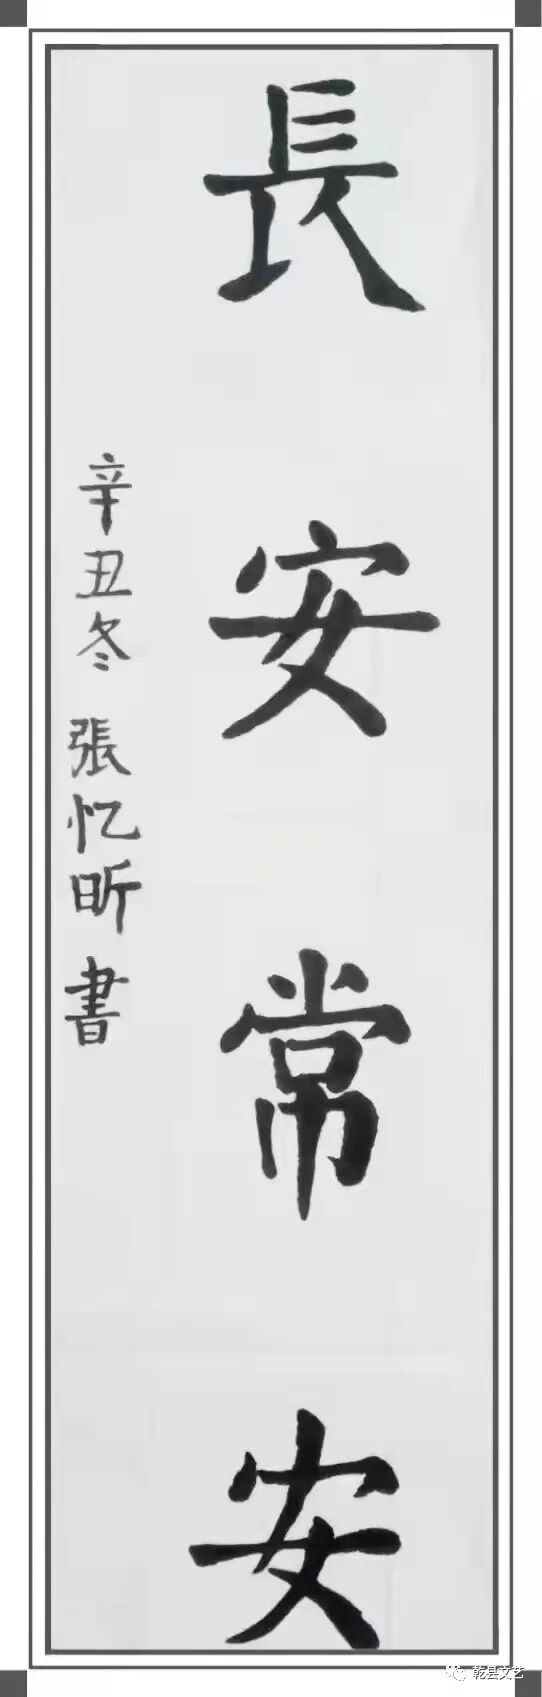 長安常安
辛丑冬 張忆昕書
乾县文艺